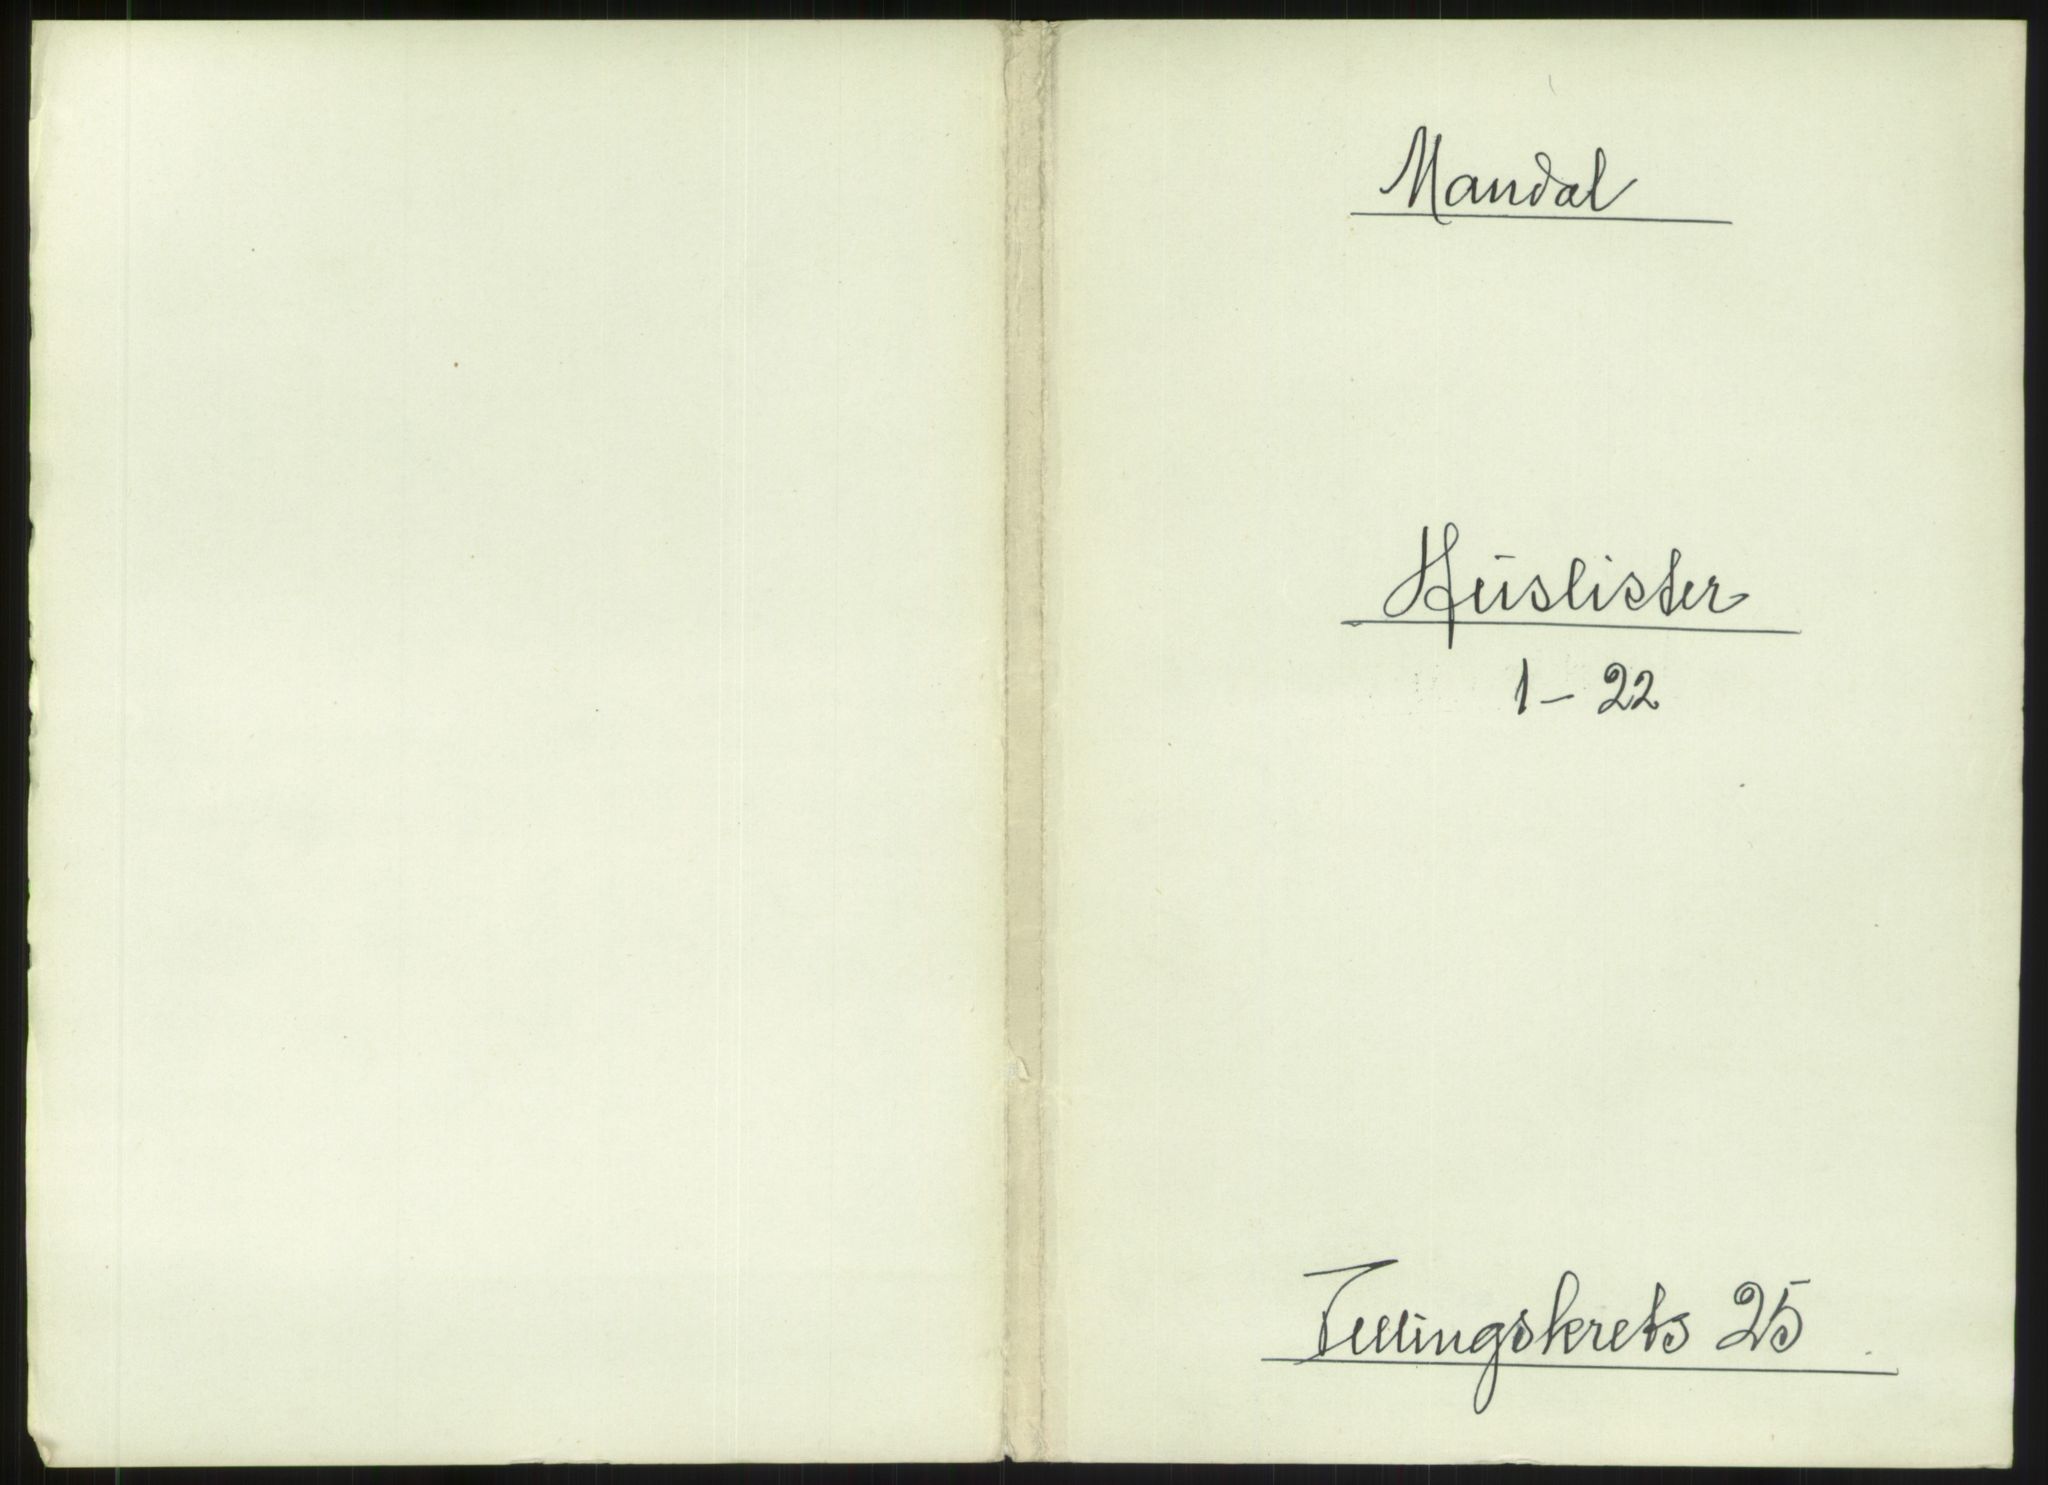 Mandal
Huslister
1 - 22
Tellingskrets 25